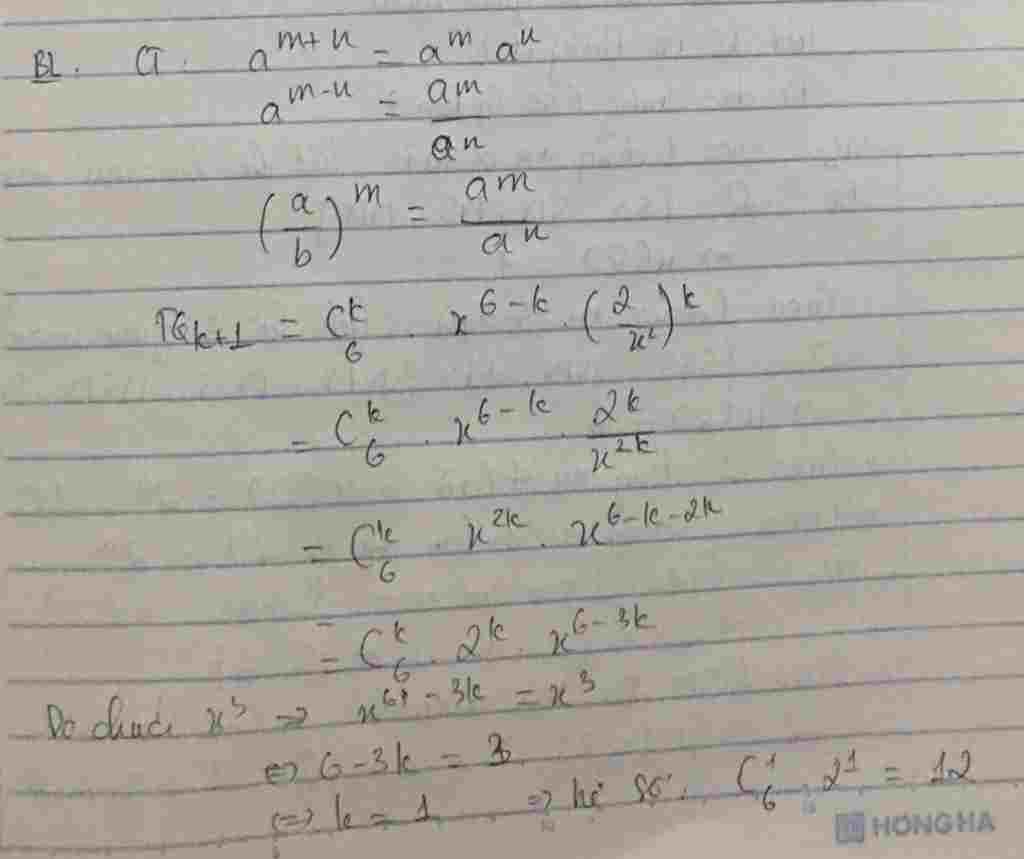 BL. CT. a^{m+n} = a^m a^n
a^{m-n} = \frac{a^m}{a^n}
(\frac{a}{b})^m = \frac{a^m}{a^n}
TQ_{k+1} = C_6^k . x^{6-k} . (\frac{2}{x^2})^k
= C_6^k . x^{6-k} . \frac{2^k}{x^{2k}}
= C_6^k . x^{2k} . x^{6-k-2k}
= C_6^k . 2^k . x^{6-3k}
Do chứa x^3 => x^{6-3k} = x^3
<=> 6-3k = 3
<=> k = 1 => hệ số: C_6^1 . 2^1 = 12
HONG HA